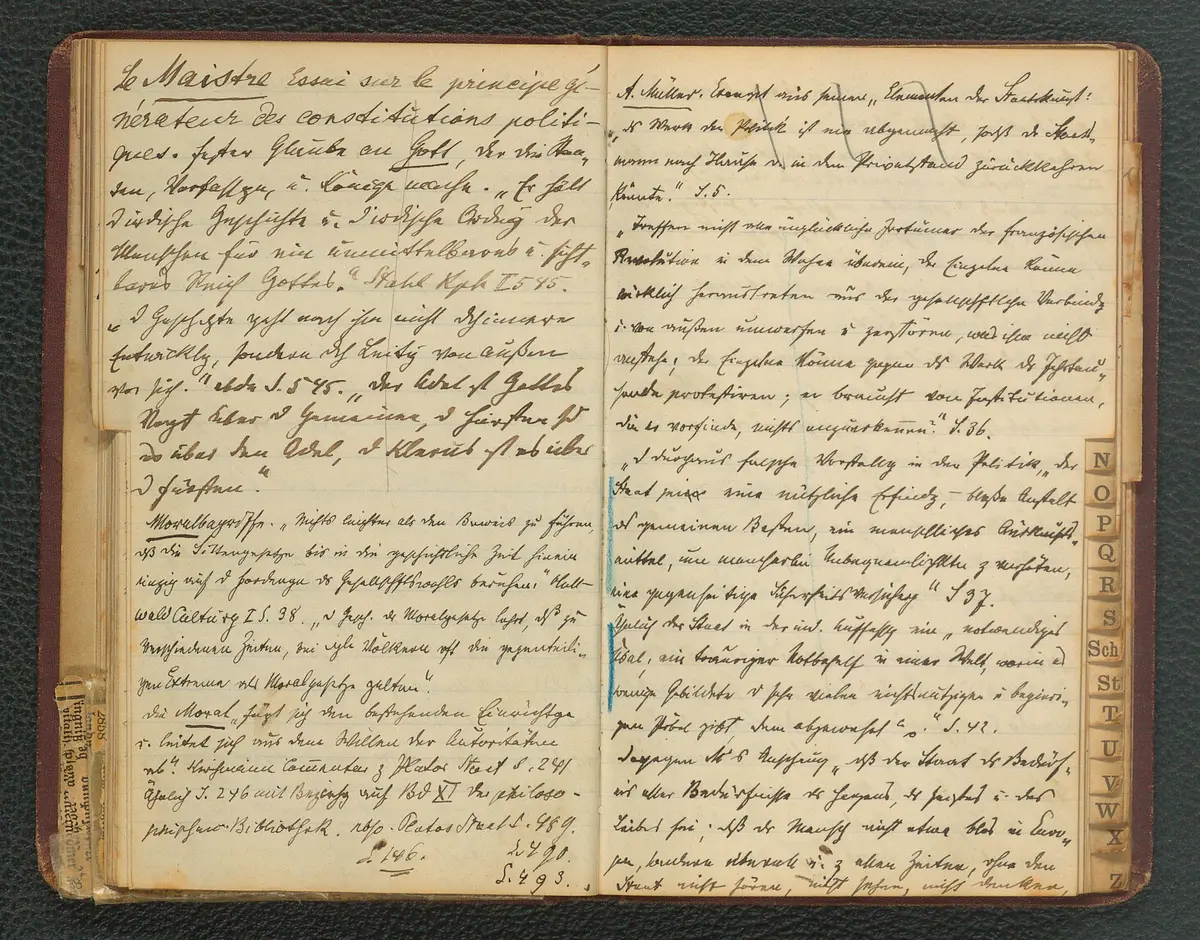 Le Maistre Essai sur le principe gé-
nérateur des constitutions politi-
ques. Fester Glaube an Gott, der die Ras-
sen, Verfassgn, u. Könige mache. „Er hält
d irdische Geschichte u. d irdische Ordng der
Menschen für ein unmittelbares u. sicht-
bares Reich Gottes." Stahl Rph I 545.
„d Geschichte geht nach ihm nicht dch innere
Entwicklg, sondern dch Leitg von außen
vor sich." ebda S. 545. „Der Adel ist Gottes
Vogt über d Gemeinen, d Fürsten sd
es über den Adel, d Klerus ist es über
d Fürsten."
Moralbegriffe. „Nichts leichter als den Beweis zu führen,
dß die Sittengesetze bis in die geschichtliche Zeit hinein
einzig auf d Fordergn ds Gesellschftswohls beruhen." Hell-
wald Culturg I S. 38. „d Gesch. der Moralgesetze lehrt, dß zu
verschiedenen Zeiten, bei Völkern oft die gegenteili-
gen Extreme als Moralgesetze gelten".
Die Moral „fügt sich den bestehenden Einrichtgn
u. leitet sich aus dem Willen der Autoritäten
ab". Kirchmann Commentar z Platos Staat S. 241
Ähnlich S. 246 mit Bezug auf Bd XI der philoso-
phischen Bibliothek. ebso Platos Staat S. 489.
S. 146. S. 490.
S. 493.
A. Müller. Excerpt aus seinen „Elementen der Staatskunst:
„ds Werk der Politik ist nie abgemacht, sodß der Staats-
mann nach Hause u. in den Privatstand zurückkehren
könnte." S. 5.
„Treffen nicht alle unglückliche Irrtümer der französischen
Revolution in dem Wahne überein, der Einzelne könne
wirklich heraustreten aus der gesellschftlichen Verbindg
u. von außen umwerfen u zerstören, was ihm nicht
anstehe; der Einzelne könne gegen ds Werk der Jahrtau-
sende protestiren; er brauche von Institutionen,
die er vorfinde, nichts anzuerkennen". S. 36.
„d durchaus falsche Vorstellg in der Politik, „der
Staat sei eine nützliche Erfindg, – bloße Anstalt
ds gemeinen Besten, ein menschliches Auskunfts-
mittel, um mancherlei Unbequemlichkten z verhüten,
eine gegenseitige Sicherheitsversicherg" S 37.
Ähnlich der Staat in der ind. Auffassg ein „notwendiges
Übel, ein trauriger Notbehelf in einer Welt, worin es
wenige Gebildete u sehr vielen nichtsnützigen u begieri-
gen Pöbel gibt, dem abgewehrt". S. 42.
Dagegen M's Anschaug „dß der Staat ds Bedürf-
nis aller Bedürfnisse ds Herzens, ds Geistes u des
Leibes sei; dß der Mensch nicht etwa blos in Euro-
pa, sondern überall u. z allen Zeiten, ohne den
Staat nicht hören, nicht sehen, nicht denken,
N
O
P
Q
R
S
Sch
St
T
U
V
W
X
Z